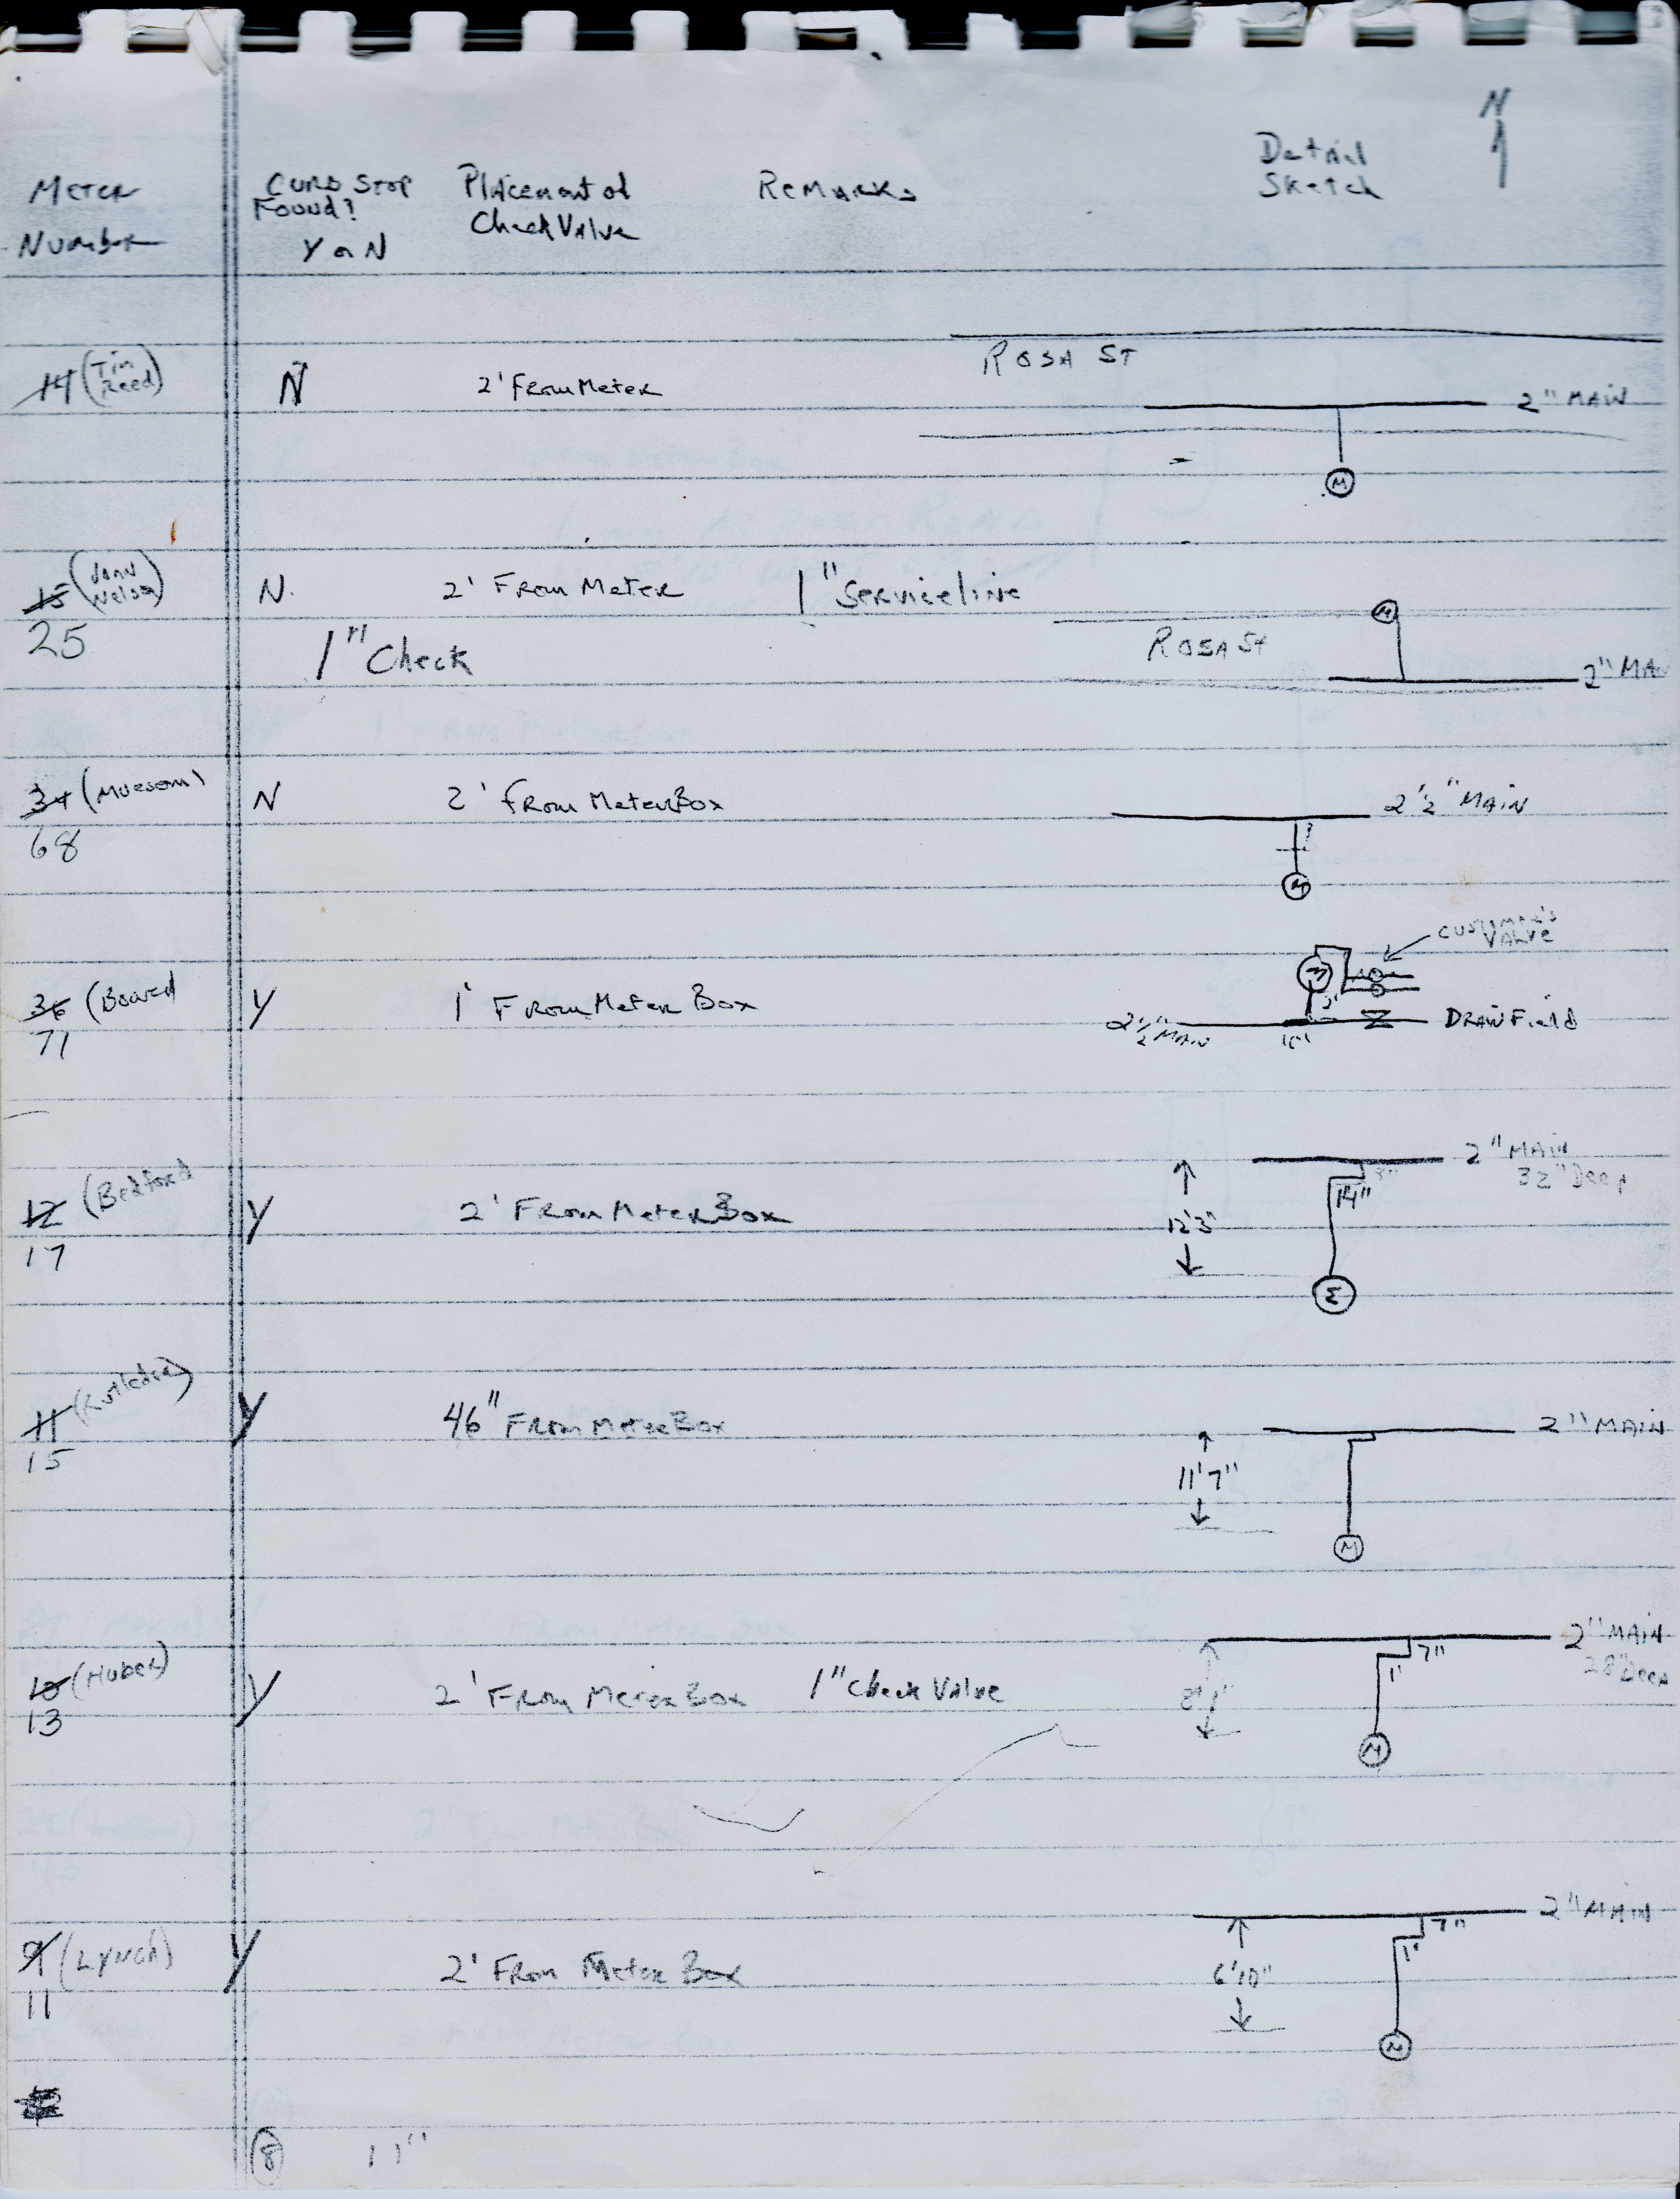 N
Detail
Sketch
Meter
Number
Curb Stop
Found?
Y or N
Placement of
Check Valve
Remarks
Rosa St
14 (Tim
Reed)
N
2' From Meter
2" Main
M
15 (John
Nelson)
25
N.
2' From Meter
1" Serviceline
M
Rosa St
1" Check
2" Ma
34 (Museum)
68
N
2' From Meter Box
2 1/2" Main
?
M
36 (Board
71
Y
1' From Meter Box
Customer's
Valve
M
3'
2 1/2" Main
Drain Field
12 (Bedford
17
Y
2' From Meter Box
2" Main
32" Deep
14"
12'3"
M
11 (Rutledge)
15
Y
46" From Meter Box
2" Main
11'7"
M
10 (Huber)
13
Y
2' From Meter Box
1" Check Valve
2" Main
28" Deep
7"
1'
M
9 (Lynch)
11
Y
2' From Meter Box
2" Main
7"
1'
6'10"
M
8
11"